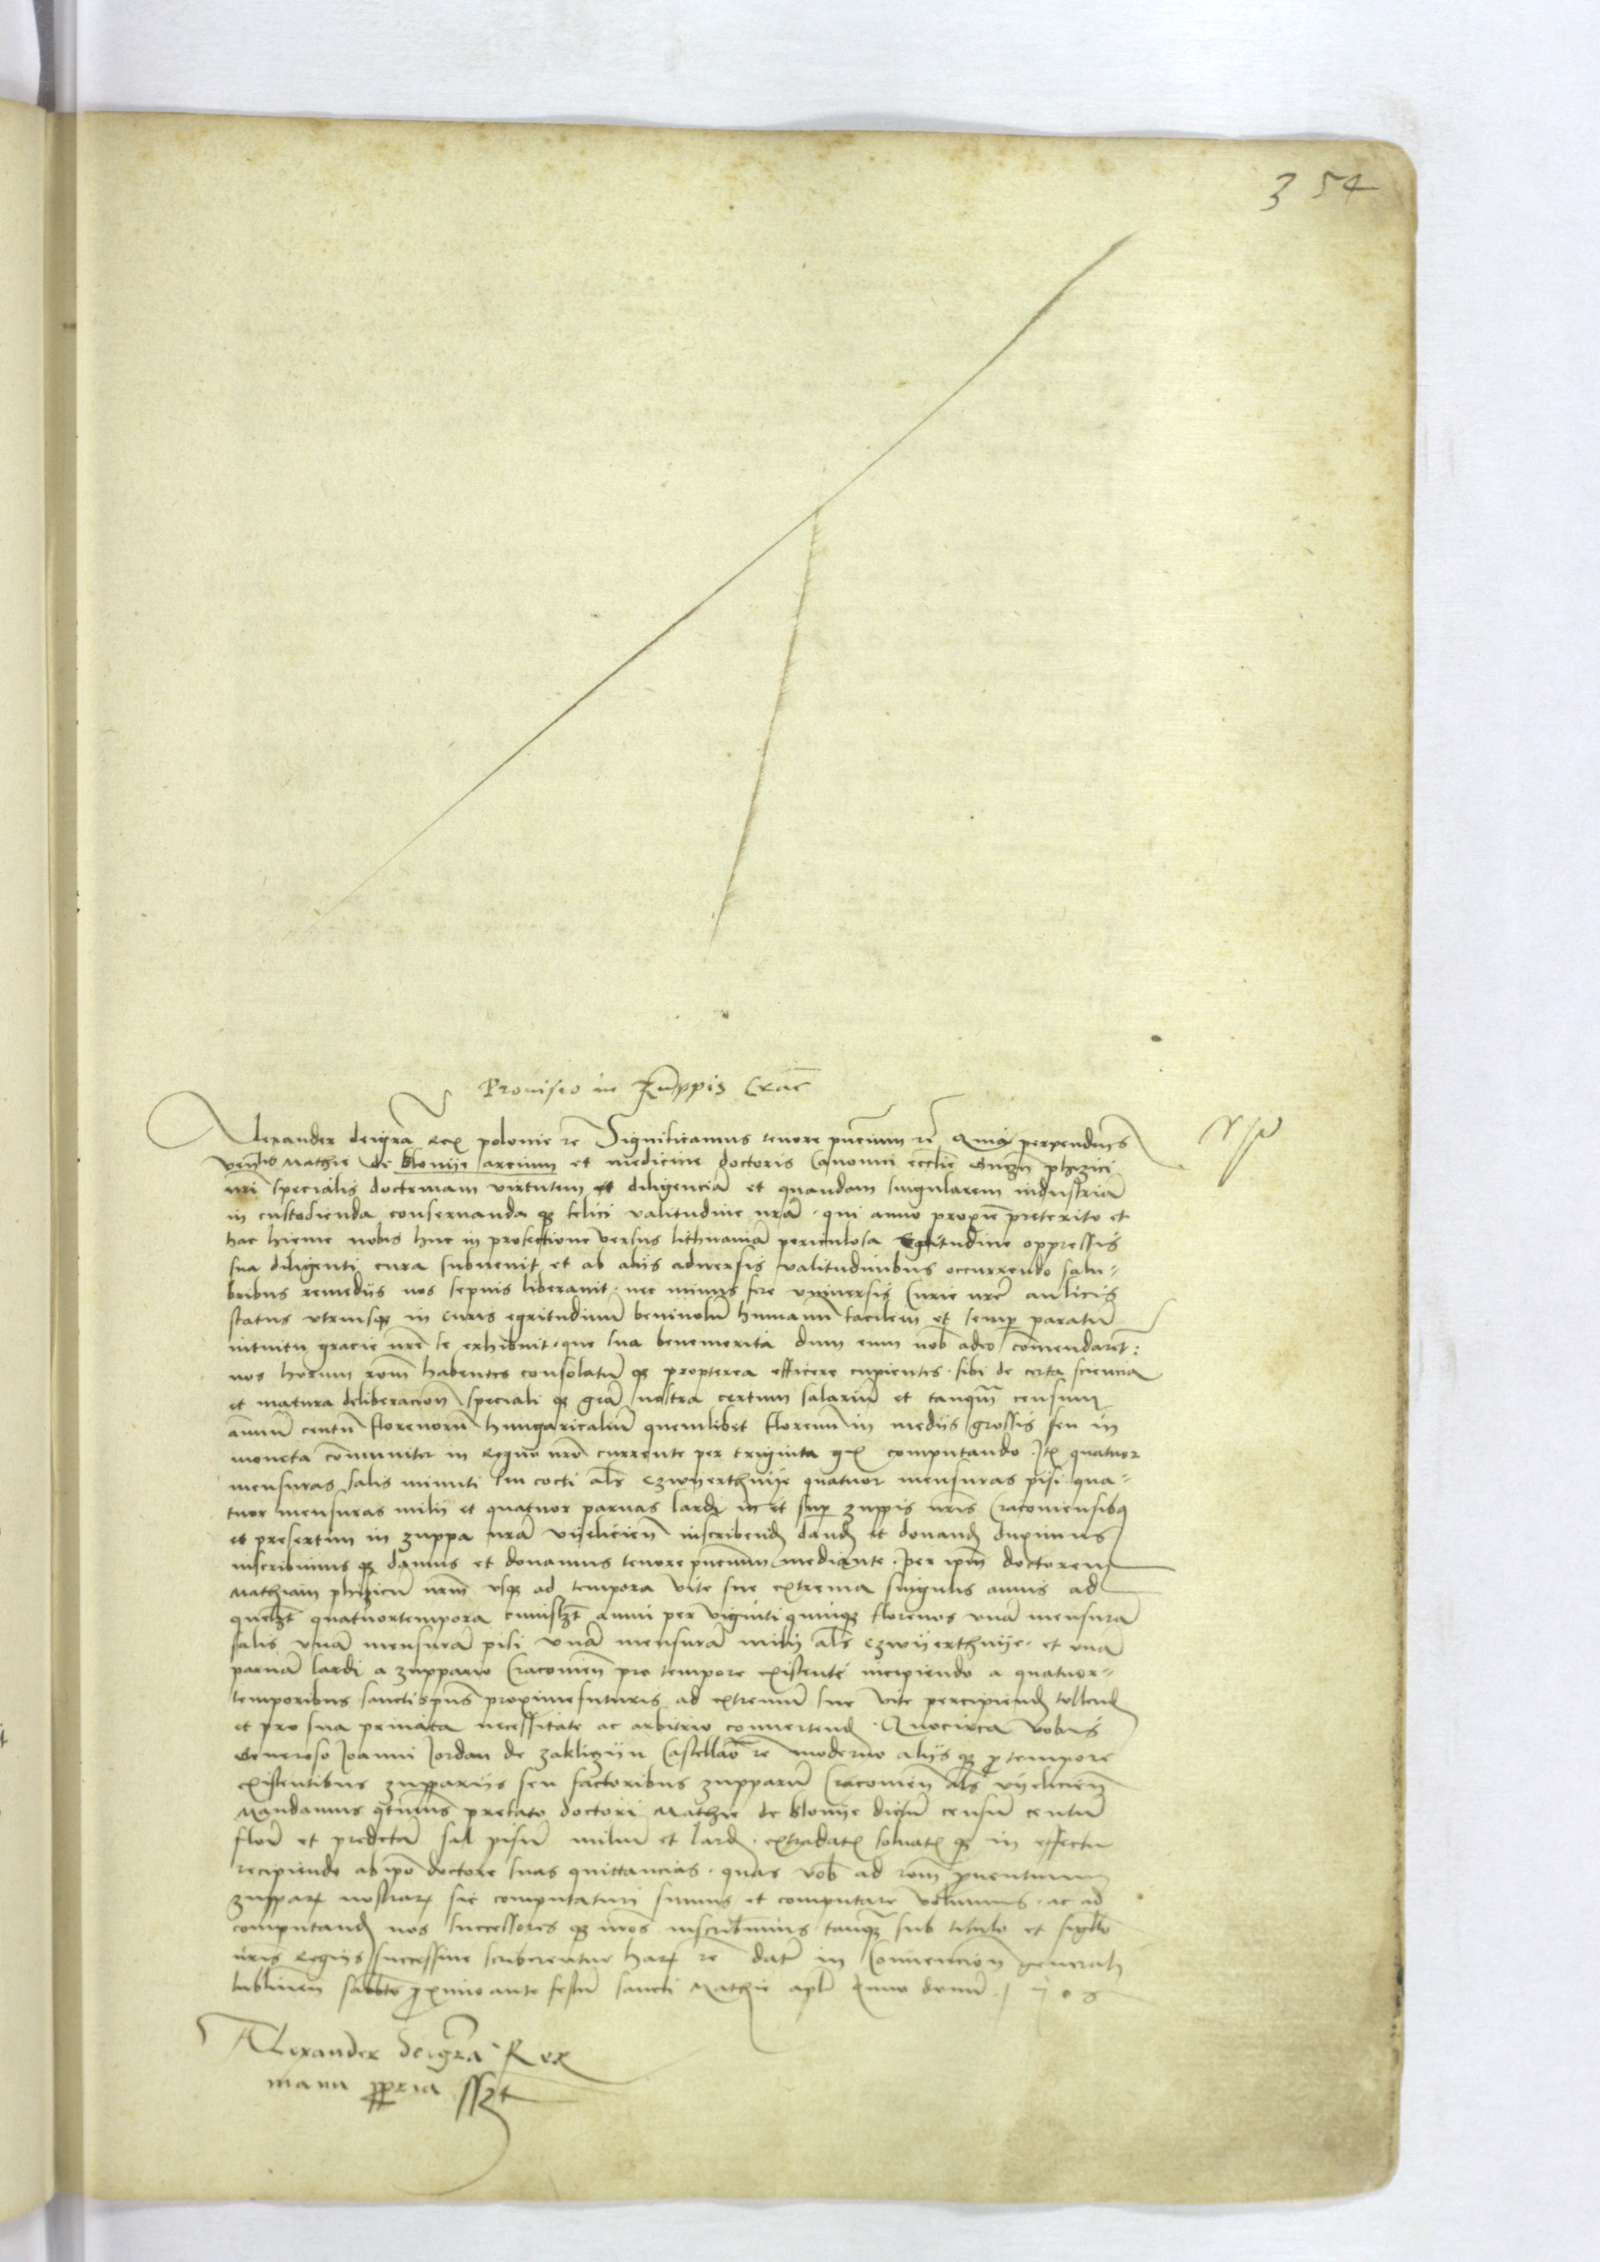 354
Provisio in Zuppis Crac̄
Alexander dei gr̄a Rex polonie rc̄ Significamus tenore pn̄cium rc̄ Quia perpendentes
ven̄lis Mathie de blonije arcium et medicine doctoris Canonici eccl̄ie Gnezn̄ phizici
nr̄i specialis doctrinam virtutem et diligenciā et quandam singularem industriā
in custodienda conseruanda qʒ felici valitudine nr̄a · qui anno proxīe preterito et
hac hieme nobis huc in profectione versus lithuaniā periculosa Egritudine oppressis
sua diligenti cura subuenit et ab aliis aduersis valitudinibus occurrendo salu-
bribus remedijs nos sepius liberauit · nec minus fere vniuersis Curie nr̄e aulicis
status vtriusqʒ in curis egritudinum beniuolū humanū facilem et semp̱ paratū
intuitu gracie nr̄e se exhibuit · que sua benemerita dum eum nob̄ adeo com̄endarēt :
nos horum rōm habentes consolatū qʒ propterea efficere cupientes · sibi de certa sciencia
et matura deliberacion̄ speciali qʒ grā nostra certum salariū et tanqm̄ censum
annuū centū florenorū hungaricaliū quemlibet florenū in medijs grossis seu in
moneta com̄uniter in Regno nr̄o currente per triginta gr̄ computando · Itꝫ quatuor
mensuras salis minuti seu cocti al̄s Czwyerthnije quatuor mensuras pisi qua-
tuor mensuras milij et quatuor parnas lardj in et sup̱ zuppis nr̄is Cracouiensibꝫ
et presertim in zuppa nr̄a vijelicien̄ inscribend̄ dand̄ et donand̄ duximus
inscribimus qʒ damus et donamus tenore pn̄cium mediante · per ip̄m doctorem
Mathiam phizicū nr̄m vsqʒ ad tempora vite sue extrema singulis annis ad
quelꝫt quatuortempora cuiuslꝫt anni per viginti quinqʒ florenos vnā mensurā
salis vnā mensurā pisi vnā mensurā milij al̄s czwijerthnije · et vnā
parnā lardi a zuppario Cracouien̄ pro tempore existente incipiendo a quatuor-
temporibus sanctispūs proxime futuris ad extremū sue vite percipiend̄ tollend̄
et pro sua priuata necessitate ac arbitrio conuertend̄ · Quocirca vobis
Generoso Joanni Jordan de zakliczijn Castellan̄o rc̄ moderno alijs qʒ ꝓ tempore
existentibus zupparijs seu factoribus zupparū Cracouien̄ al̄s vijelicien̄
Mandamus qtinus prefato doctori Mathie de blonije dictū censū centū
flor̄ et predctū sal pisū miliū et lard̄ · extradatꝫ soluatꝫ qʒ in effectu
recipiendo ab ip̄o doctore suas quittancias · quas vob̄ ad rōm prouentuum
zupparꝫ nostrarꝫ sic computaturi sumus et computare volumus · ac ad
computand̄ nos successores qʒ nr̄os inscribimus tanqʒ sub titulo et sigillo
nr̄is Regijs successiue scriberentur harꝫ rc̄ datꝫ in Conuencion̄ generali
lublinen̄ sabbto ꝓximo ante festū sancti Mathie apl̄i Anno domī
Alexander dei gr̄a Rex
manu ꝓpria sszt